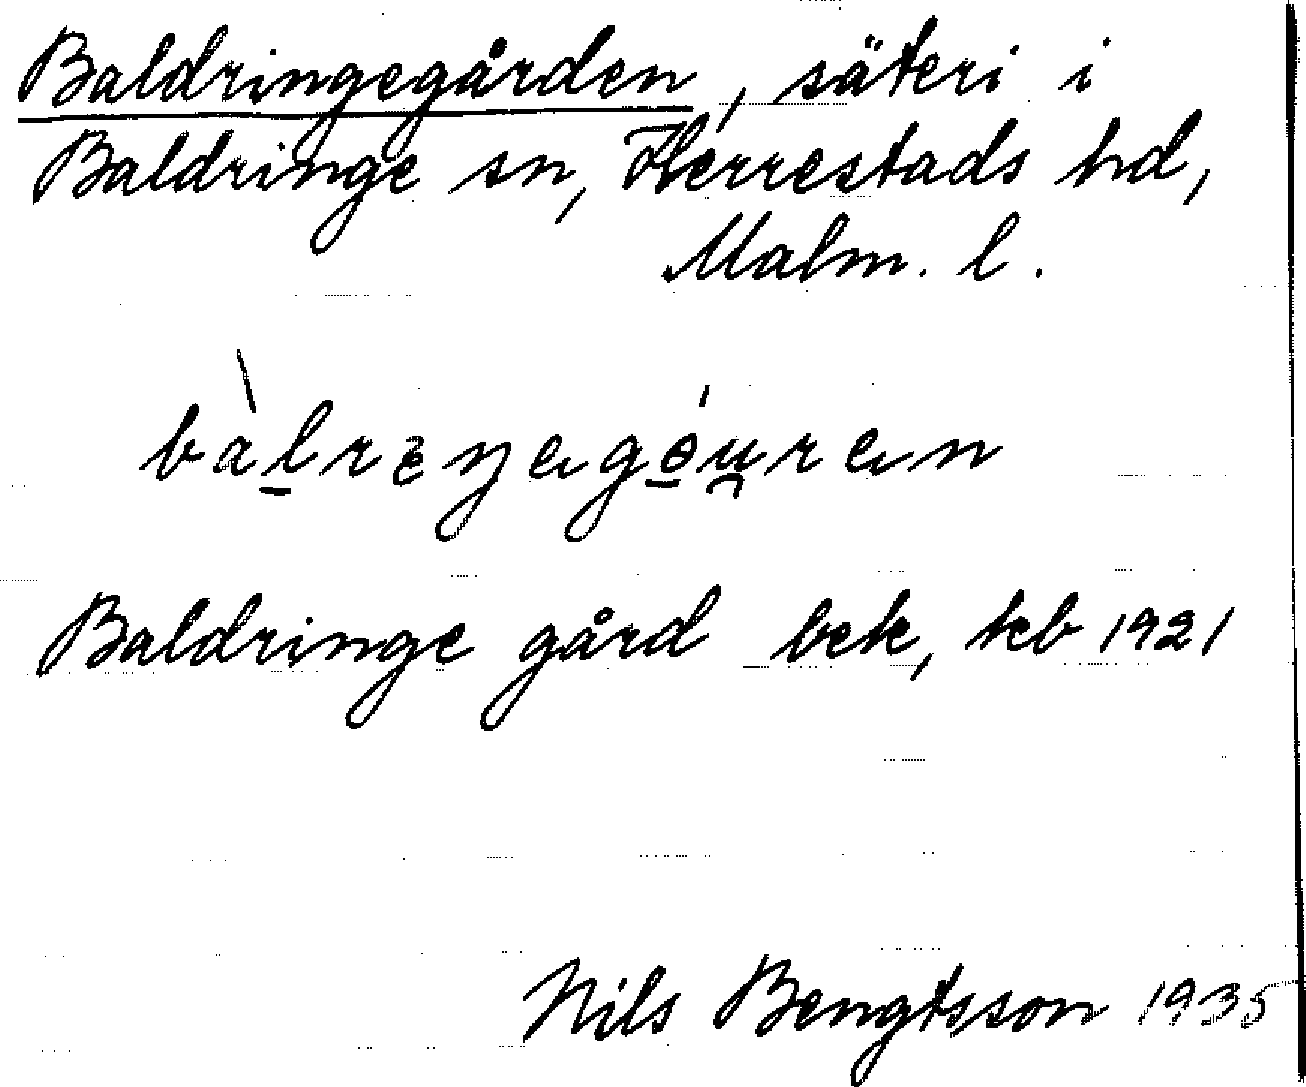 Baldringegården, säteri i
Baldringe sn, Herrestads hd,
Malm. l.
Baldringe gård bek, tkb 1921
Nils Bengtsson 1935